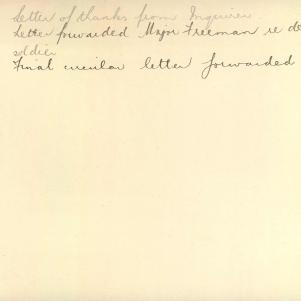 Letter of thanks from Inquirer
Letter forwarded Major Freeman re de
soldier
Final circular letter forwarded